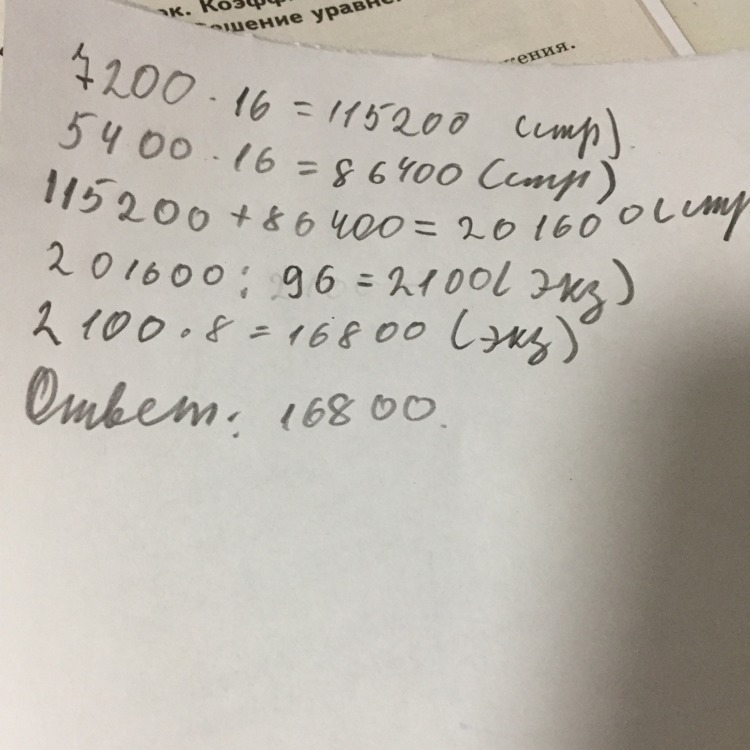 ок. Коэфф
шение уравне
ения.
7200 · 16 = 115200 (стр).
5400 · 16 = 86400 (стр)
115200 + 86400 = 201600 (стр
201600 : 96 = 2100 (экз)
2100 · 8 = 16800 (экз)
Ответ: 16800.